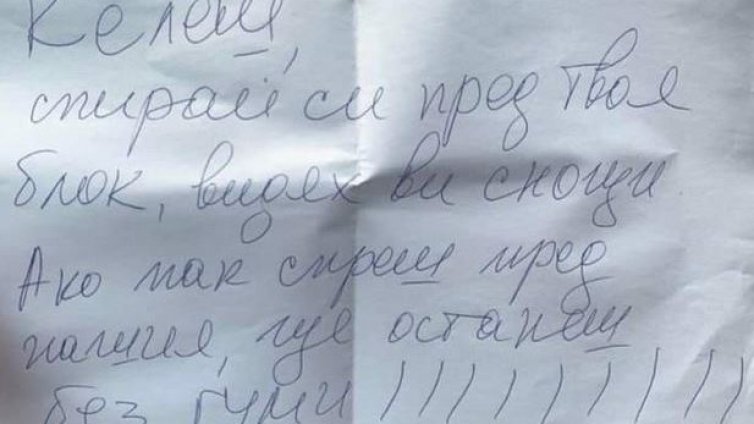 Келеш,
спирай си пред твоя
блок, видях ви снощи.
Ако пак спреш пред
нашия, ще останеш
без гуми )))))))))